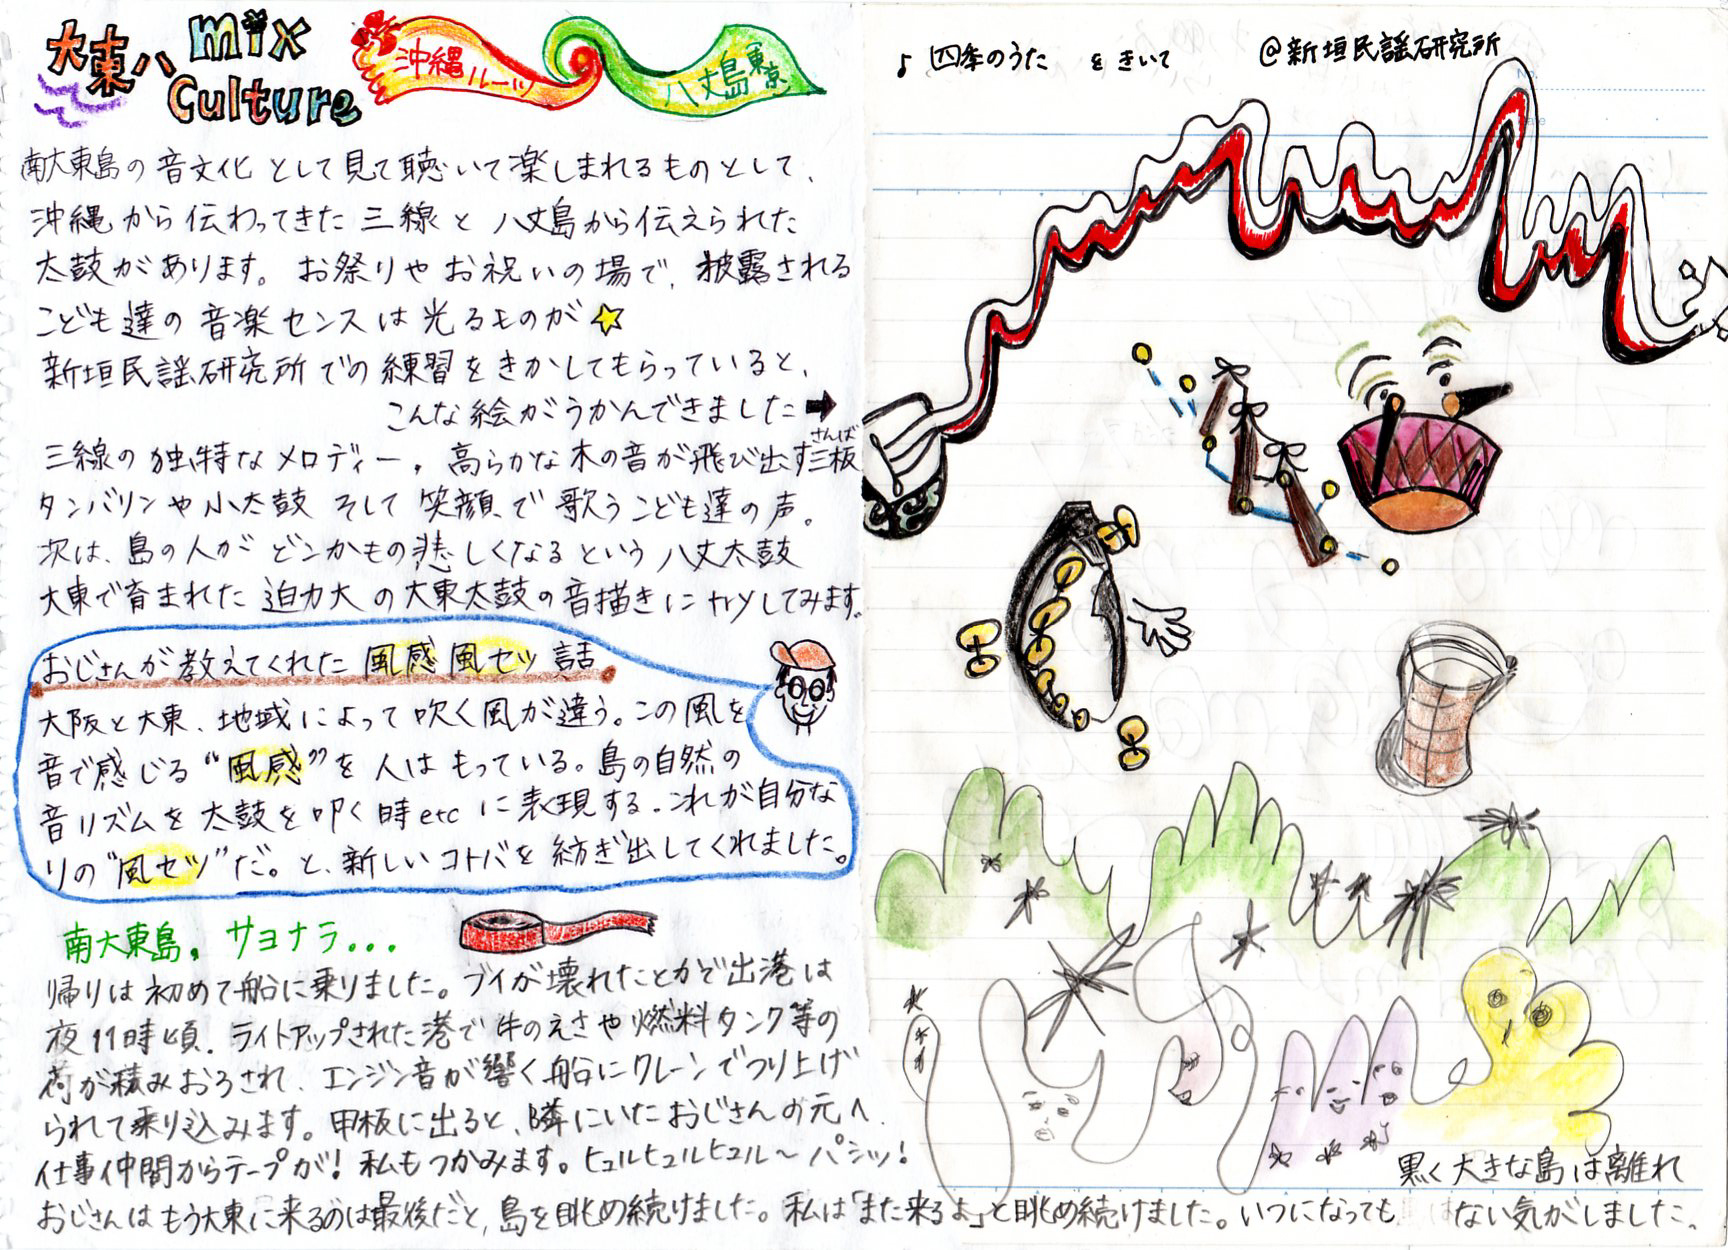 大東ハ mix Culture
沖縄ルーツ
八丈島東京
南大東島の音文化として見て聴いて楽しまれるものとして、
沖縄から伝わってきた三線と八丈島から伝えられた
太鼓があります。お祭りやお祝いの場で、披露される
こども達の音楽センスは光るものが☆
新垣民謡研究所での練習をきかしてもらっていると、
こんな絵がうかんできました➡
三線の独特なメロディー。高らかな木の音が飛び出す三板
さんば
タンバリンや小太鼓 そして笑顔で歌うこども達の声。
次は、島の人がどンかもの悲しくなるという八丈太鼓
大東で育まれた迫力大の大東太鼓の音描きにtryしてみます。
おじさんが教えてくれた風感風セツ話
大阪と大東、地域によって吹く風が違う。この風を
音で感じる“風感”を人はもっている。島の自然の
音リズムを太鼓を叩く時etcに表現する。これが自分な
りの“風セツ”だ。と、新しいコトバを紡ぎ出してくれました。
南大東島。サヨナラ...
帰りは初めて船に乗りました。ブイが壊れたとかで出港は
夜11時頃。ライトアップされた港で牛のえさや燃料タンク等の
荷が積みおろされ、エンジン音が響く船にクレーンでつり上げ
られて乗り込みます。甲板に出ると、隣にいたおじさんの元へ
仕事仲間からテープが!私もつかみます。ヒュルヒュルヒュル〜パシッ!
おじさんはもう大東に来るのは最後だと、島を眺め続けました。私は「また来るよ」と眺め続けました。いつになっても
黒く大きな島は離れ
ない気がしました。
♪四季のうた をきいて @新垣民謡研究所